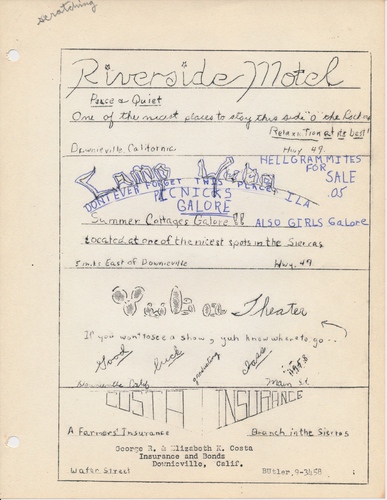 scratching
Riverside Motel
Peace & Quiet
One of the nicest places to stay this side "o" the Rockies
Relaxation at its best!
Downieville, California Hwy 49.
HELLGRAMMITES
FOR
SALE
.05
DON'T EVER FORGET THIS PLACE, ILA
PICNICKS
GALORE
Summer Cottages Galore!!
ALSO GIRLS GALORE
Located at one of the nicest spots in the Sierras
5 miles East of Downieville Hwy. 49
Theater
If you won't see a show, yuh know where to go - -
Good luck graduating class
Downieville Calif. Main St.
COSTA INSURANCE
A Farmers' Insurance Branch in the Sierras
George R. & Elizabeth M. Costa
Insurance and Bonds
Downieville, Calif.
Water Street BUtler. 9-3458